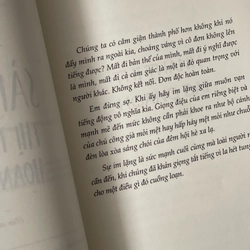 Chúng ta có căm giận thành phố hơn không khi nó
đẩy mình ra ngoài kia, choáng váng vì cô đơn không lên
tiếng được? Mất đi bản thể của mình, mất đi ý nghĩ được
là mình, mất đi cả cảm giác là một ai đó quan trọng với
người khác. Không kết nối. Đơn độc hoàn toàn.
Em đừng sợ. Khi ấy hãy im lặng giữa muôn vạn
tiếng động vô nghĩa kia. Giọng điệu của em riêng biệt và
mạnh mẽ đến mức không cần phải khoe ra như bộ cánh
của chú công già mỏi mệt hay hấp háy mệt mỏi như chuỗi
đèn lòa xòa sáng chói của đêm hội hè xa lạ.
Sự im lặng là sức mạnh cuối cùng mà loài người
cần đến, khi chúng đã khản giọng tất tiếng vì la hét tung
cho một điều gì đó cuồng loạn.